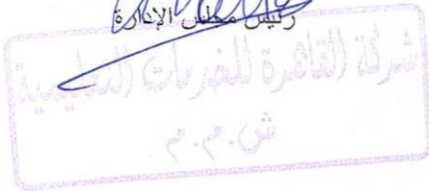 رئيس مجلس الإدارة
شركة القاهرة للخدمات التعليمية
ش.م.م